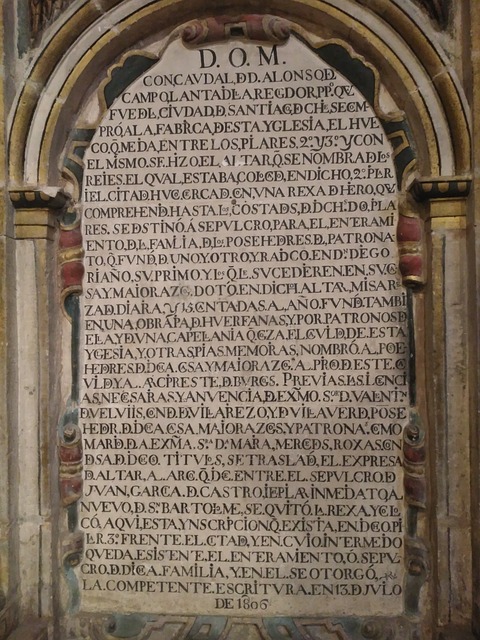 D. O. M.
CON CAVDAL, D.D. ALONSO D
CAMPO, LANTADLAREGDORPP. QV
FVE DL, CIVDAD, D. SANTIAG, D CHLE, CM
PRÓ, A LA, FABRCA, DESTA, YGLESIA, EL HVE
CO, Q. MEDA, ENTRE LOS, PLARES, 2º. Y 3º. Y CON
EL MISMO, SE, HZO, EL, ALTAR, Q. SE NOMBRA DLS
REIES, EL QVAL, ESTABA, COLCD, EN DICHO, 2º. PLR
IEL, CITAD, HVC, CRCAD, CN, VNA REXA D HERO, QV
COMPREHEND, HASTA, LS, COSTADS, D, DCH, DO, PLA
RES. SE DSTINÓ Á SEPVLCRO, PARA, EL, ENTERAMI
ENTO, D, L, FAMLIA, D, LOS POSEHEDRES, D, PATRONA
TO, Q, FVND, D. VNO, Y OTRO, Y RADCO, EN D. DEGO
RIAÑO, SV, PRIMO Y LS. Q. LE, SVCEDEREN, EN, SV, CS
SA Y MAIORAZG, DOTO, EN DICH, ALTA, MISAR
ZAD, DIARA, CNTADAS, AÑO, FVND, TAMBI
EN, VNA, OBRA, PA, D, HVERFANAS, Y, POR PATRONOS, D
ELA, Y D, VNA CAPELANIA, Q, GZA, EL, CVL D, DE, ESTA
YGESIA, Y, OTRAS, PIAS, MEMORAS, NOMBRÓ, A, POE
HEDRES, D, DCA, CSA, Y MAIORAZG, A, PROD, ESTE, C
VIL D, Y A, ACPRESTE, D, BVRGS. PREVIAS, LS, LCNCI
AS, NECSARAS, Y ANVENCIA, D, EXMO. SR. D. VALNTN
D, VELVIIS, CND, D, VILAREZO, Y, D, VILAVERD, POSE
HEDR, D, DCA, CSA, MAIORAZGS, Y, PATRONA, COMO
MARD, D, LA EXMA. SRA. DA. MARA, MERCDS, ROXAS, CN
DSA, D, DCO, TITVLS, SE TRASLAD, EL, EXPRESA
D, ALTAR, A, ARC, Q, DCE, ENTRE, EL, SEPVLCRO, D
JVAN, GARCA, D, CASTRO, IE PLAR INMEDATO, AL
NVEVO, D, S. BARTOLME, SE, QVITÓ, LA, REXA, Y CL
CÓ, AQVI, ESTA, YNSCRIPCION, Q, EXISTIA, EN DCO, PI
LR, 3º. FRENTE, EL, CTAD, Y EN, CVIO, INTERMEDO
QVEDA, ESISTENTE, EL, ENTERAMIENTO, Ó, SEPV
CRO, D, DICA, FAMILIA, Y, EN, EL, SE OTORGÓ,
LA, COMPETENTE, ESCRITVRA. EN 13, D JVLIO
DE 1806